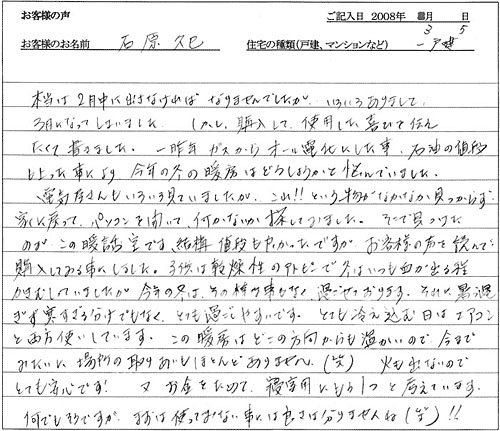 お客様の声 ご記入日 2008年 3月 5日
お客様のお名前 石原久巳 住宅の種類(戸建、マンションなど) 一戸建
本当は2月中に出さなければなりませんでしたが、いろいろありまして、
3月になってしまいました。しかし、購入して、使用した喜びを伝え
たくて書きました。一昨年ガスからオール電化にした事、石油の値段
も上った事により今年の冬の暖房はどうしようかと悩んでいました。
電気屋さんもいろいろ見ていましたが、これ!!という物がなかなか見つからず、
家に戻って、パソコンを開いて、何かないか探しておりました。そこで見つけた
のが、この暖話室です。結構値段も良かったですが、お客様の声を読んで
購入してみる事にしました。子供は乾燥性のアトピーで冬はいつも血が出る程
かきむしっていましたが今年の冬は、その様な事もなく過ごせております。それに暑過
ぎず寒すぎるわけでもなく、とても過ごしやすいです。とても冷え込む日はエアコン
と両方使いしています。この暖房はどこの方向からも温かいので、今まで
みたいに場所の取りあいもほとんどありません。(笑) 火も出ないので
とても安心です! 又お金をためて、寝室用にもう1つと考えています。
何でもそうですが、まずは使ってみない事には良さは分りませんね(笑)!!